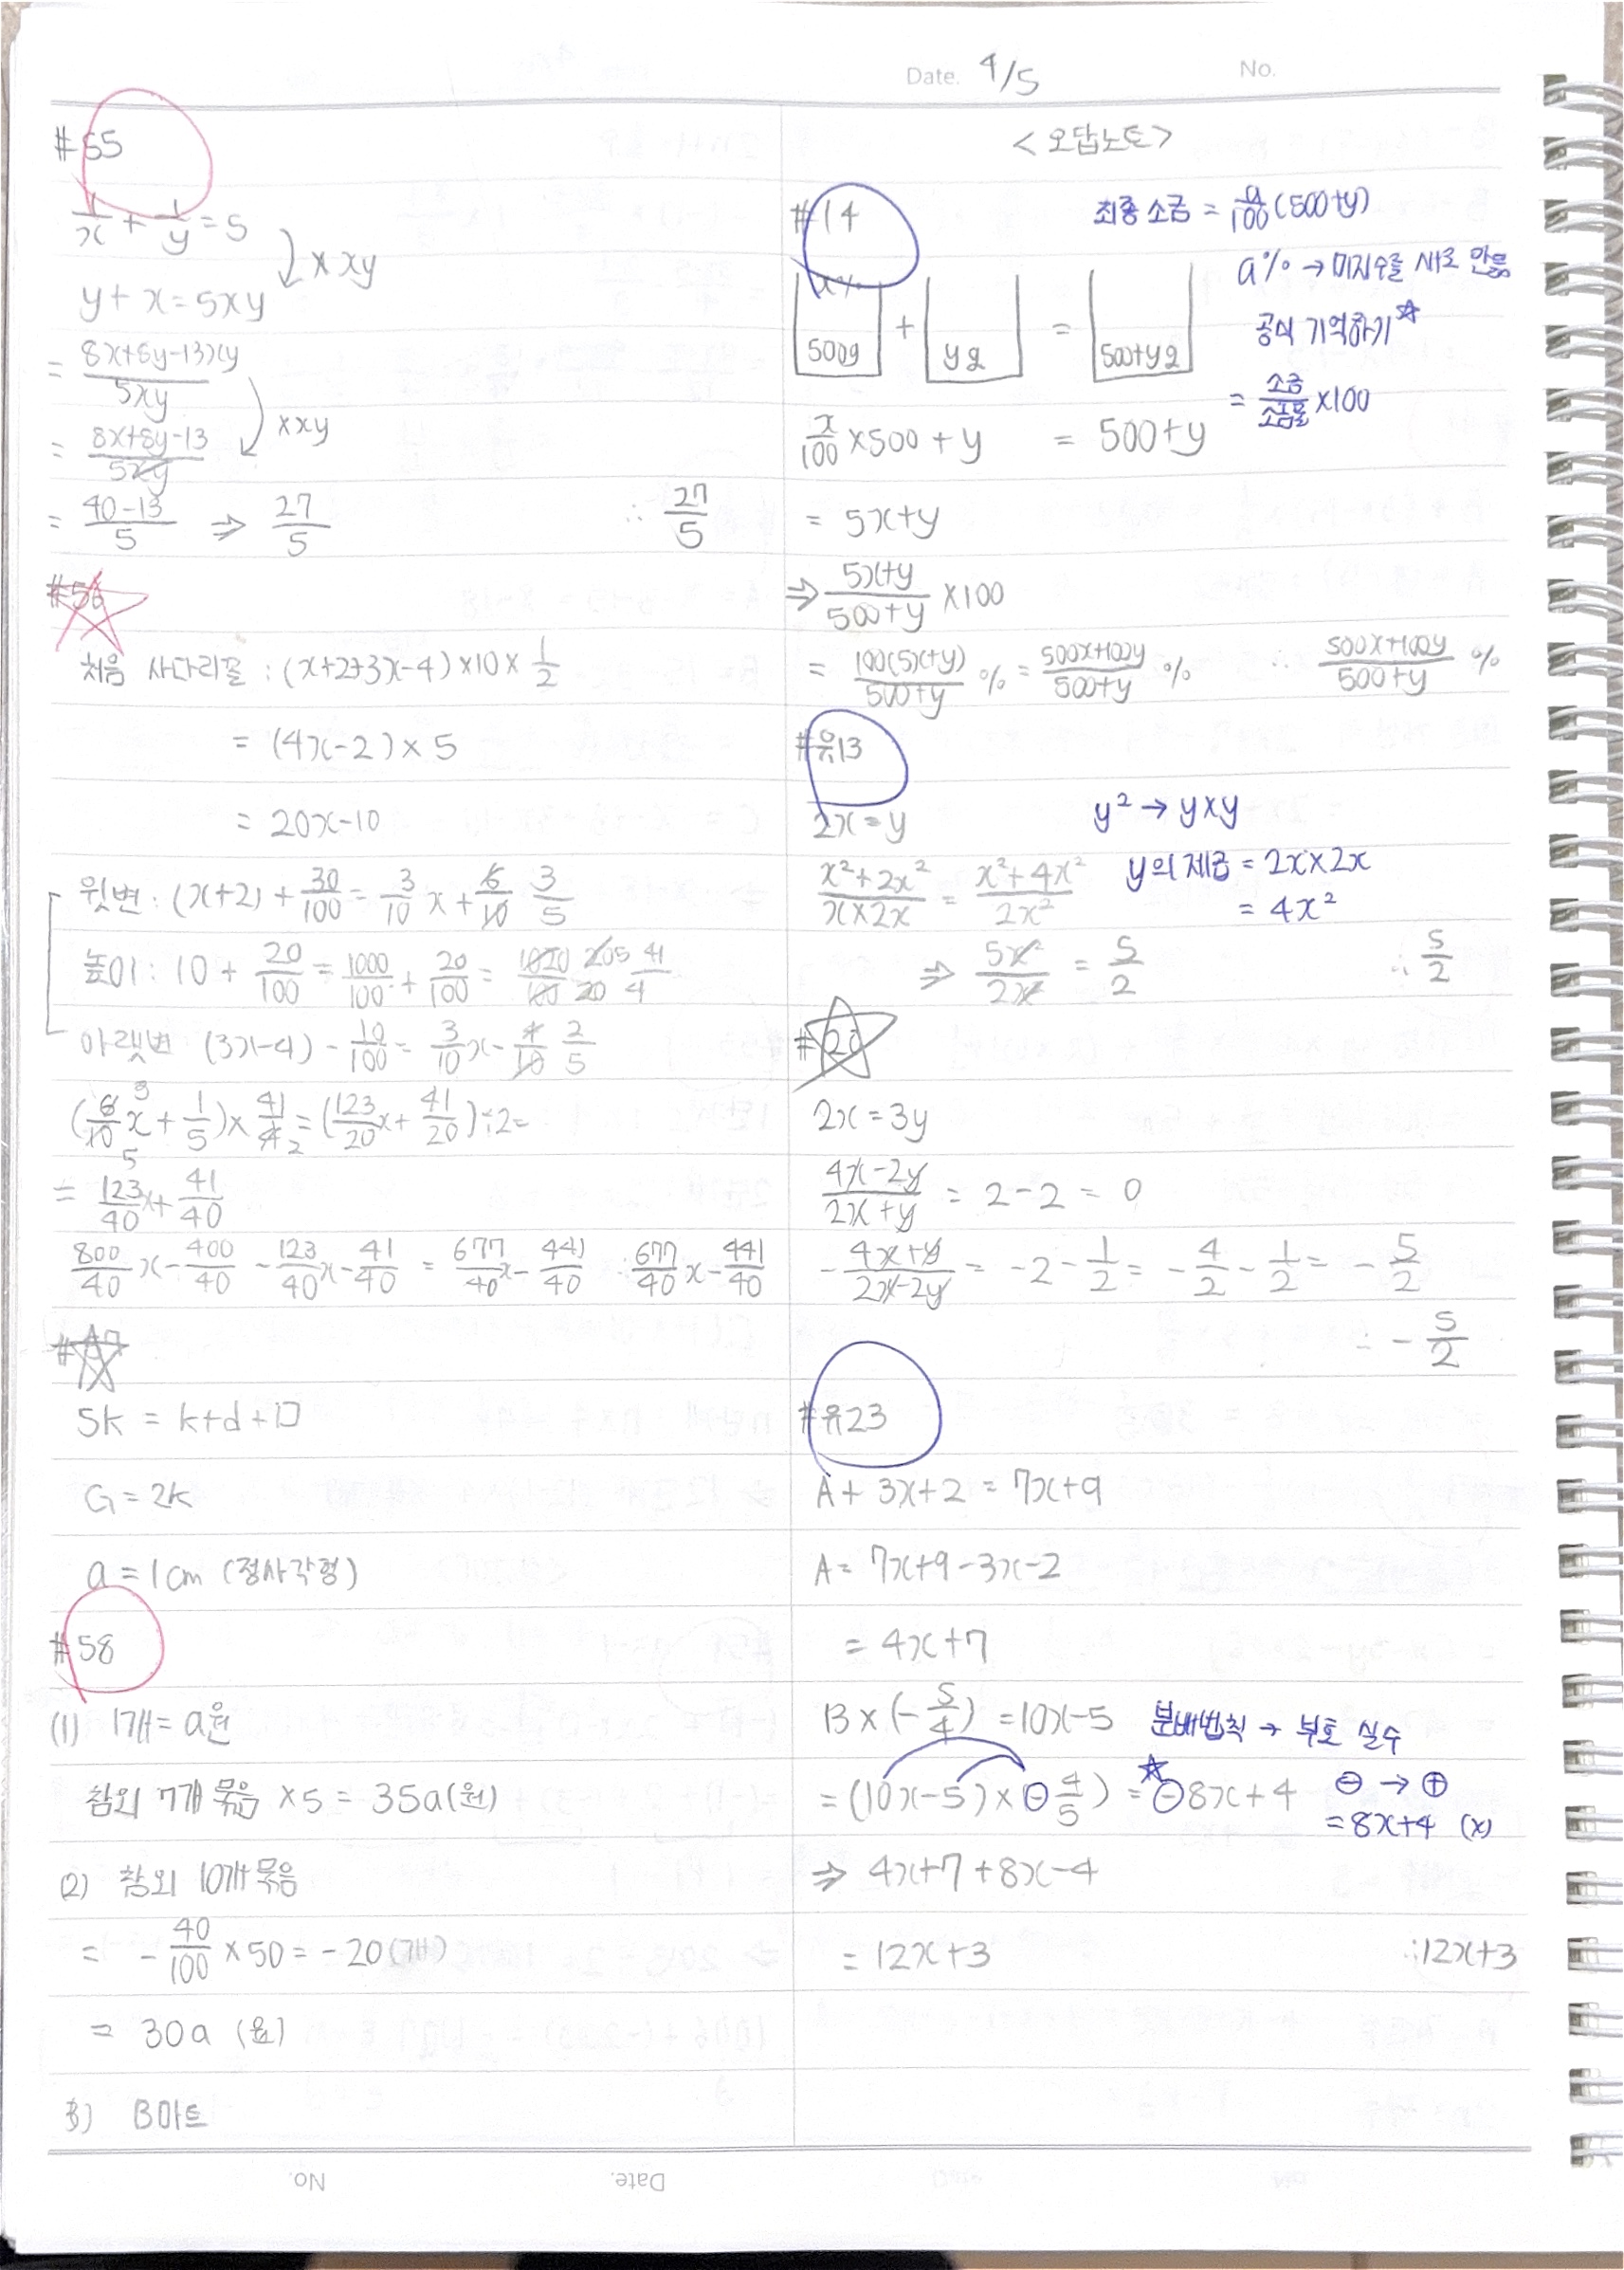 Date. 4/5 No.
#55
1/x + 1/y = 5
× xy
y + x = 5xy
= (8x+8y-13xy)/(5xy)
× xy
= (8x+8y-13)/(5xy)
= (40-13)/5 ⇒ 27/5 ∴ 27/5
#56
처음 사다리꼴 : (x+2+3x-4)×10×1/2
= (4x-2)×5
= 20x-10
윗변 : (x+2) + 30/100 = 3/10 x + 6/10 3/5
높이 : 10 + 20/100 = 1000/100 + 20/100 = 1020/100 205/20 41/4
아랫변 (3x-4) - 10/100 = 3/10 x - 4/10 2/5
(6/10 3/5 x + 1/5) × 41/4 2 = (123/20 x + 41/20) ÷ 2 =
= 123/40 x + 41/40
800/40 x - 400/40 - 123/40 x - 41/40 = 677/40 x - 441/40 ∴ 677/40 x - 441/40
#57
5k = k+d+D
G = 2k
a = 1cm (정사각형)
#58
(1) 1개 = a원
참외 7개 묶음 ×5 = 35a(원)
(2) 참외 10개 묶음
= - 40/100 × 50 = -20(개)
= 30a (원)
3) B마트
<오답노트>
#14
최종 소금 = a/100 (500+y)
a% → 미지수를 새로 만듦
x%
500g + yg = 500+yg
공식 기억하기☆
= 소금/소금물 ×100
x/100 ×500 + y = 500+y
= 5x+y
⇒ (5x+y)/(500+y) ×100
= 100(5x+y)/(500+y) % = (500x+100y)/(500+y) % ∴ (500x+100y)/(500+y) %
#유13
2x = y
y² → y×y
(x²+2x²)/(x×2x) = (x²+4x²)/(2x²)
y의 제곱 = 2x×2x
= 4x²
⇒ 5x²/2x² = 5/2 ∴ 5/2
#20
2x = 3y
(4x-2y)/(2x+y) = 2-2 = 0
- (4x+y)/(2x-2y) = -2 - 1/2 = - 4/2 - 1/2 = - 5/2
∴ - 5/2
#유23
A + 3x+2 = 7x+9
A = 7x+9-3x-2
= 4x+7
B × (- 5/4) = 10x-5
분배법칙 → 부호 실수
= (10x-5) × (- 4/5) = ☆ -8x+4
⊖ → ⊕
= 8x+4 (x)
⇒ 4x+7+8x-4
= 12x+3 ∴ 12x+3
Date. No.